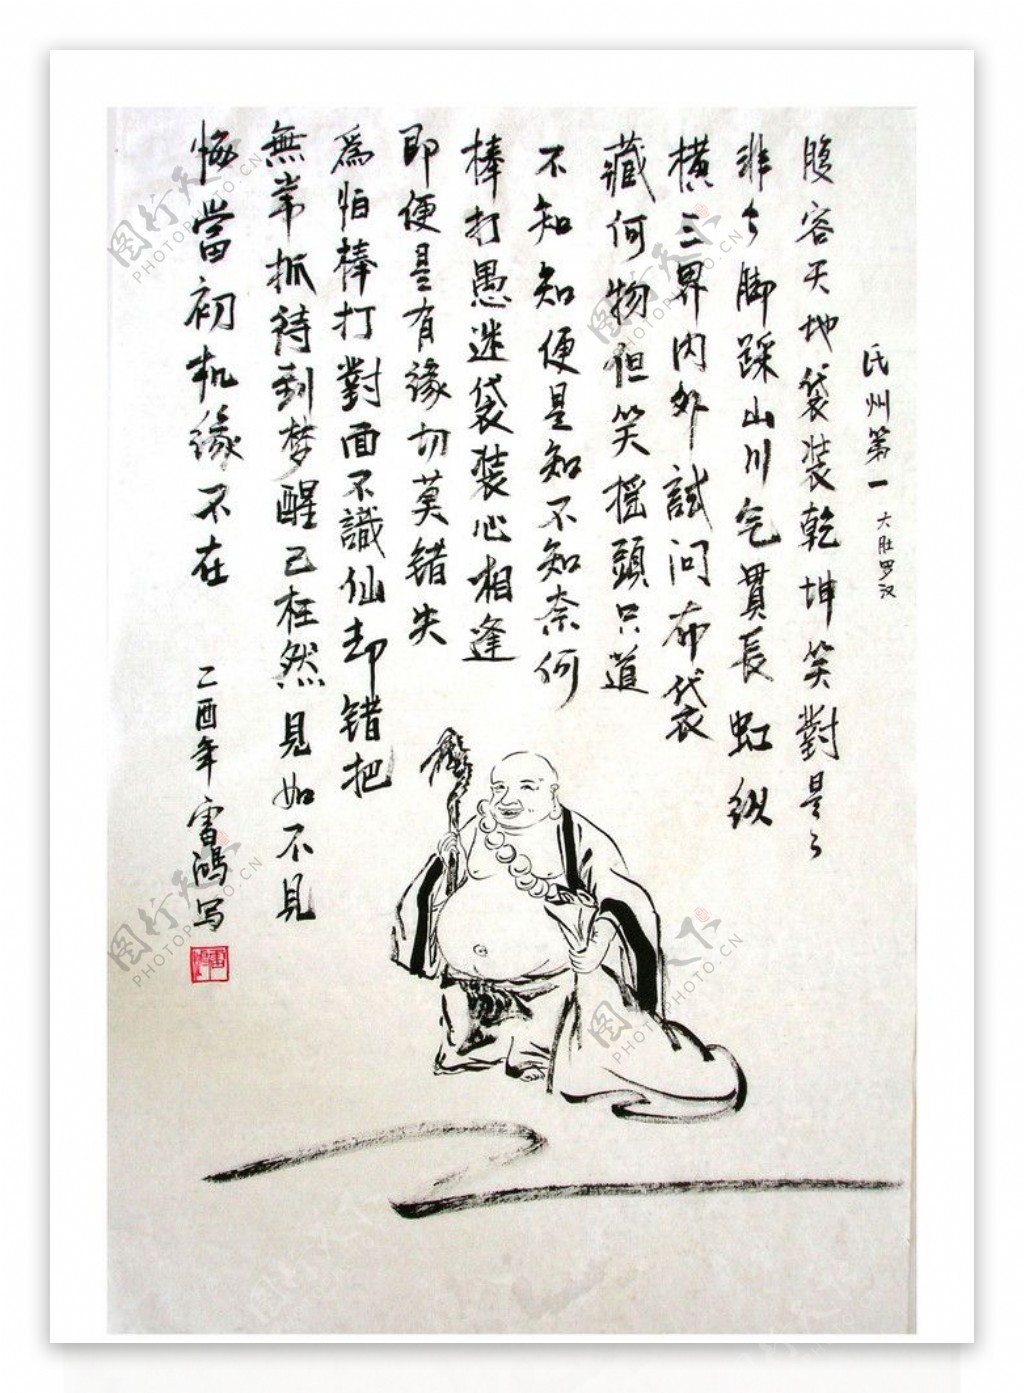 氏州第一 大肚罗汉
腹容天地袋装乾坤笑對是々
非々脚踩山川气貫長虹纵
横三界内外試问布袋
藏何物但笑摇頭只道
不知知便是知不知奈何
棒打愚迷袋装心相逢
即便是有缘切莫错失
爲怕棒打對面不識仙却错把
無常抓待到梦醒已枉然見如不見
悔當初机缘不在
乙酉年雷鴻写
图行天下
PHOTOPHOTO.CN
图行天下
PHOTOPHOTO.CN
图行天下
PHOTOPHOTO.CN
图行天下
PHOTOPHOTO.CN